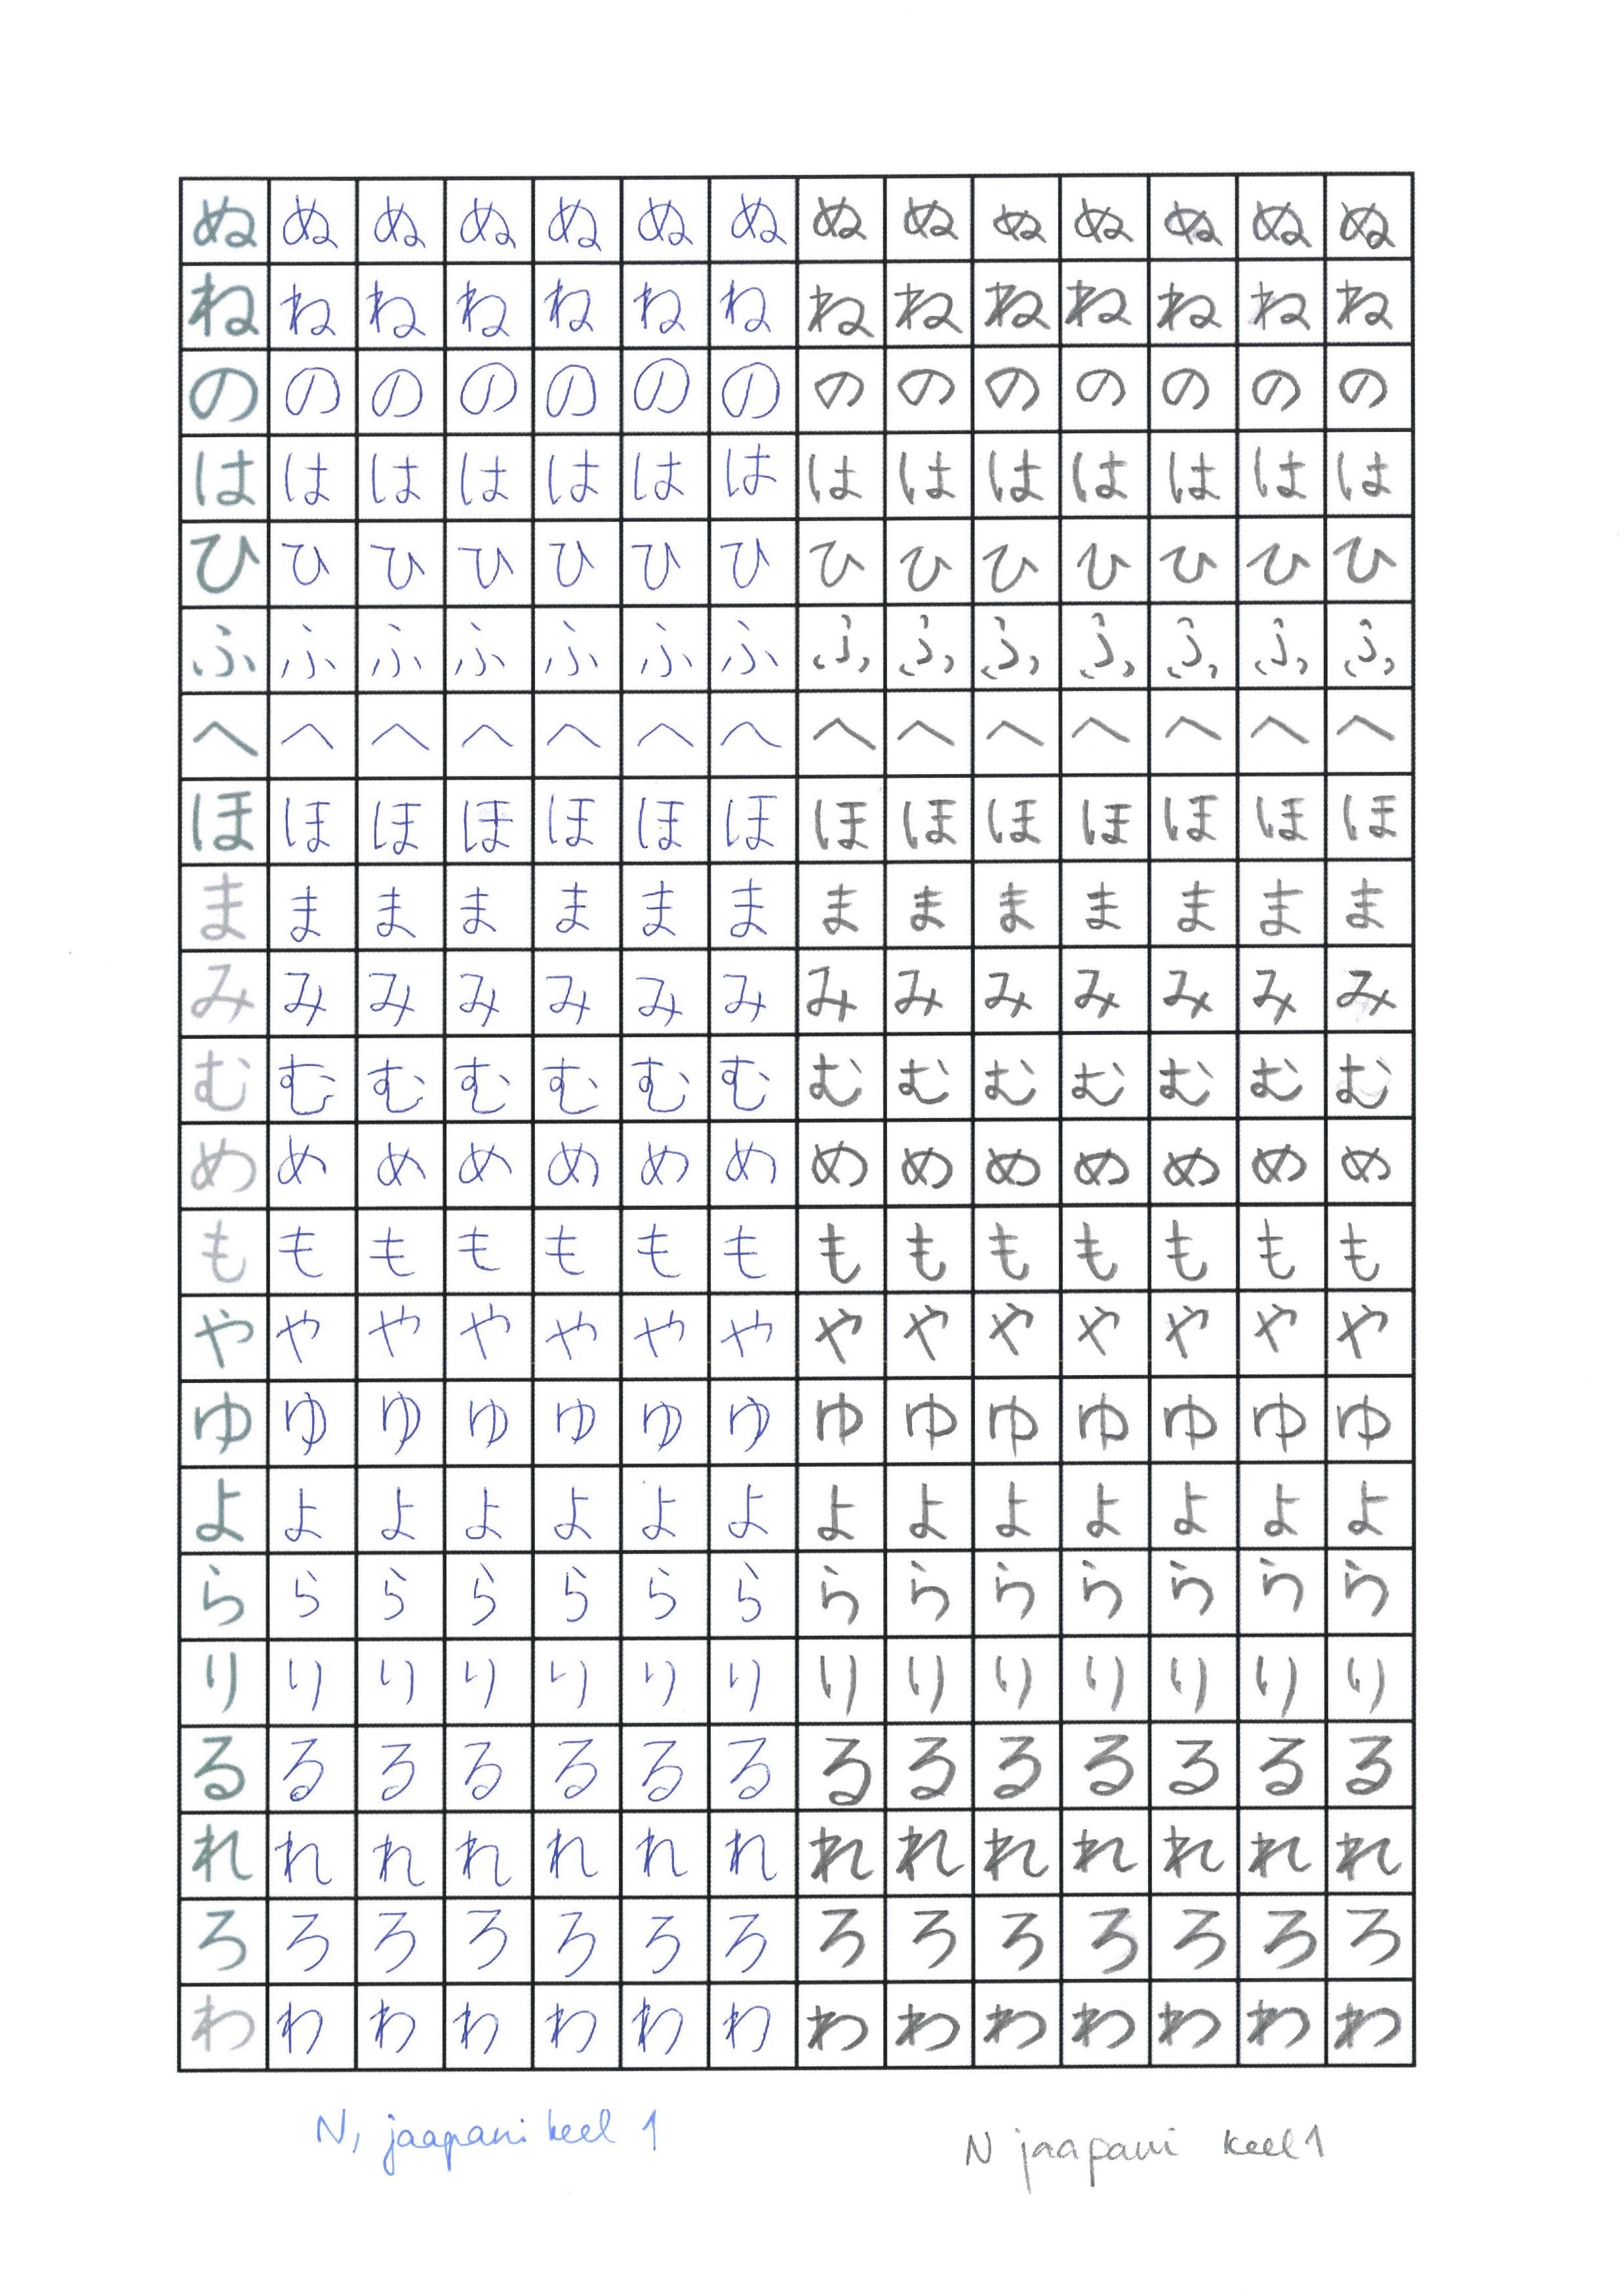 ぬ ぬ ぬ ぬ ぬ ぬ ぬ ぬ ぬ ぬ ぬ ぬ ぬ ぬ
ね ね ね ね ね ね ね ね ね ね ね ね ね ね
の の の の の の の の の の の の の の
は は は は は は は は は は は は は は
ひ ひ ひ ひ ひ ひ ひ ひ ひ ひ ひ ひ ひ ひ
ふ ふ ふ ふ ふ ふ ふ ふ ふ ふ ふ ふ ふ ふ
へ へ へ へ へ へ へ へ へ へ へ へ へ へ
ほ ほ ほ ほ ほ ほ ほ ほ ほ ほ ほ ほ ほ ほ
ま ま ま ま ま ま ま ま ま ま ま ま ま ま
み み み み み み み み み み み み み み
む む む む む む む む む む む む む む
め め め め め め め め め め め め め め
も も も も も も も も も も も も も も
や や や や や や や や や や や や や や
ゆ ゆ ゆ ゆ ゆ ゆ ゆ ゆ ゆ ゆ ゆ ゆ ゆ ゆ
よ よ よ よ よ よ よ よ よ よ よ よ よ よ
ら ら ら ら ら ら ら ら ら ら ら ら ら ら
り り り り り り り り り り り り り り
る る る る る る る る る る る る る る
れ れ れ れ れ れ れ れ れ れ れ れ れ れ
ろ ろ ろ ろ ろ ろ ろ ろ ろ ろ ろ ろ ろ ろ
わ わ わ わ わ わ わ わ わ わ わ わ わ わ
N, jaapani keel 1
N jaapani keel 1